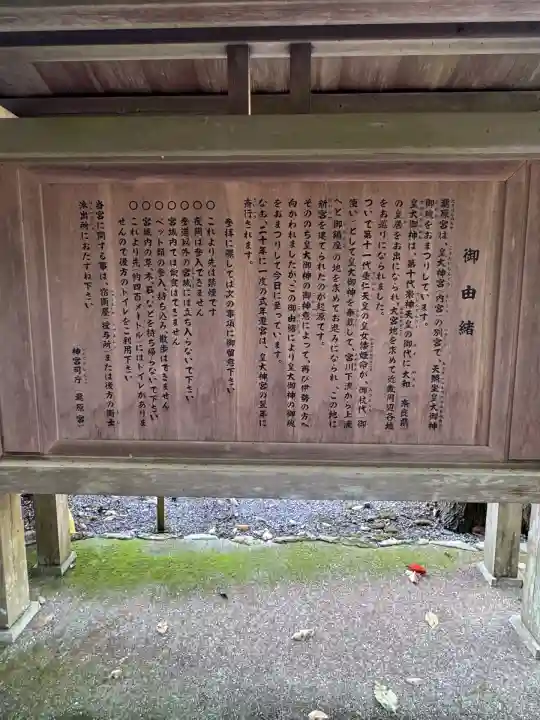 御由緒
瀧原宮は、皇大神宮 内宮 の別宮で、天照坐皇大御神
御魂をおまつりしています。
皇大御神は、第十代崇神天皇の御代に大和 奈良県
の皇居をお出になられ、大宮地を求めて近畿周辺各地
をお巡りになられました。
ついで第十一代垂仁天皇の皇女倭姫命が、御杖代 御
使い として皇大御神を奉戴して、宮川下流から上流
へと御鎮座の地を求めてお進みになられ、この地に
新宮を建てられたのが起源です。
そののち皇大御神の御神意によって、再び伊勢の方へ
向かわれましたが、この御由緒により皇大御神の御魂
をおまつりして今日に至っています。
なお、二十年に一度の式年遷宮は、皇大神宮の翌年に
斎行されます。
参拝に際しては次の事項に御留意下さい
○これより先は禁煙です
○夜間は参入できません
○参道以外の宮域には立ち入らないで下さい
○宮域内では飲食はできません
○ペット類の参入、持ち込み、散歩はできません
○宮域内の草、木、石などを持ち帰らないで下さい
○これより先、約四百メートルにはトイレがありま
せんので後方のトイレをご利用下さい
当宮に関する事は、宿衛屋 授与所 または後方の衛士
派出所におたずね下さい
神宮司庁 瀧原宮